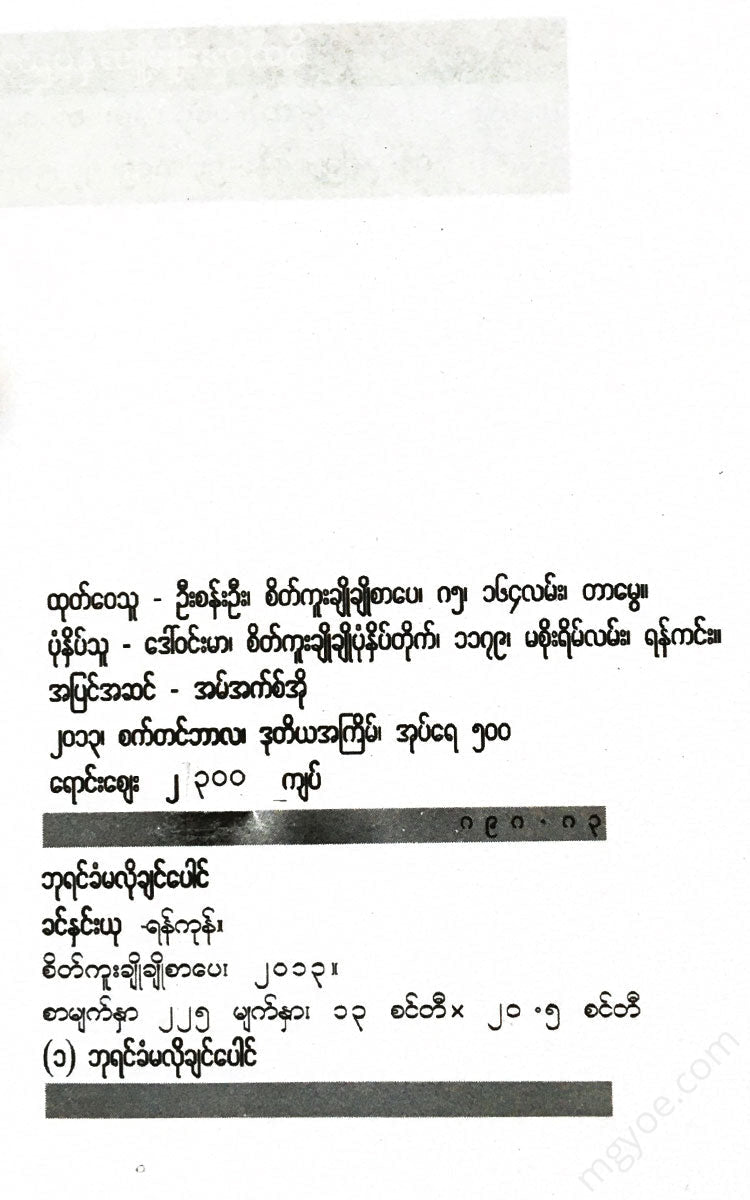 ထုတ်ဝေသူ - ဦးစန်းဦး၊ စိတ်ကူးချိုချိုစာပေ၊ ဂ၅၊ ၁၆၄လမ်း၊ တာမွေ။
ပုံနှိပ်သူ - ဒေါ်ဝင်းမာ၊ စိတ်ကူးချိုချိုပုံနှိပ်တိုက်၊ ၁၁၇၉၊ မစိုးရိမ်လမ်း၊ ရန်ကင်း။
အပြင်အဆင် - အမ်အက်စ်အို
၂၀၁၃၊ စက်တင်ဘာလ၊ ဒုတိယအကြိမ်၊ အုပ်ရေ ၅၀၀
ရောင်းဈေး ၂၃၀၀ ကျပ်
၈၉၈.၈၃
ဘုရင်ခံမလိုချင်ပေါင်
ခင်နှင်းယု -ရန်ကုန်။
စိတ်ကူးချိုချိုစာပေ၊ ၂၀၁၃။
စာမျက်နှာ ၂၂၅ မျက်နှာ၊ ၁၃ စင်တီ × ၂၀.၅ စင်တီ
(၁) ဘုရင်ခံမလိုချင်ပေါင်
mgyoe.com